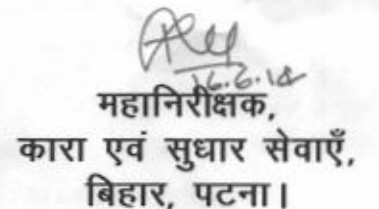 16.6.12
महानिरीक्षक,
कारा एवं सुधार सेवाएँ,
बिहार, पटना।